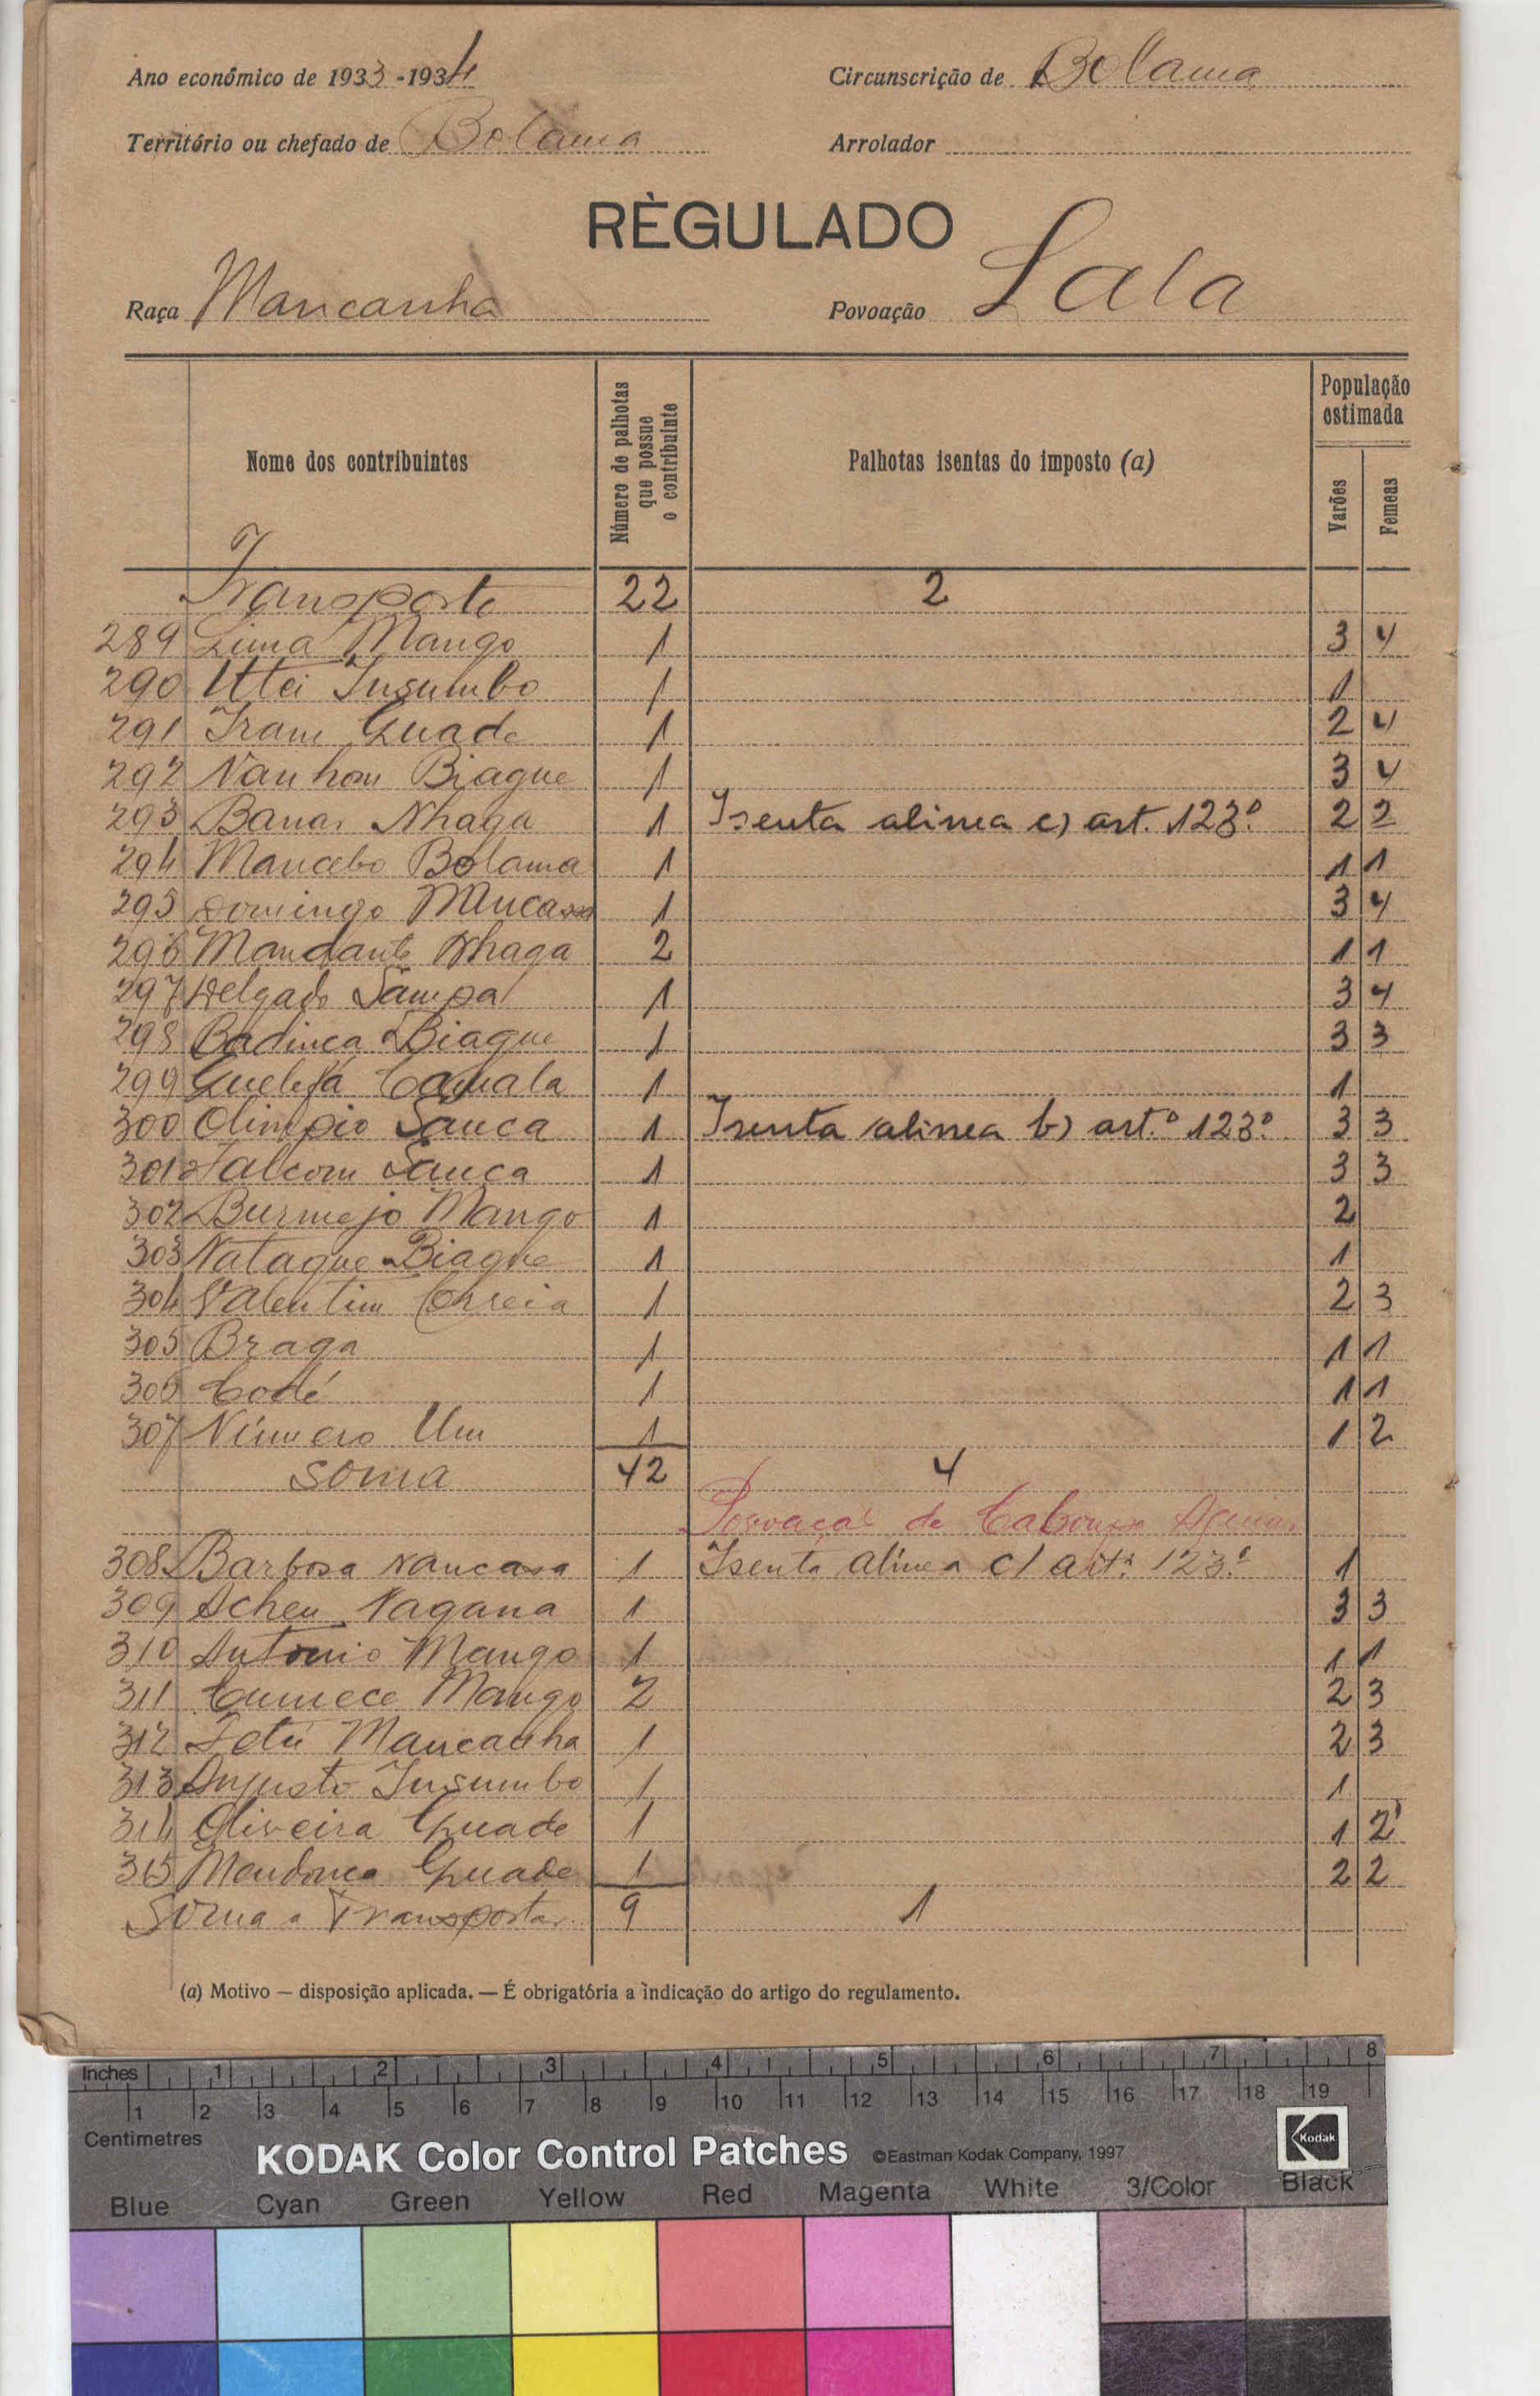 Ano económico de 1933-1934 Circunscrição de Bolama
Território ou chefado de Bolama Arrolador
RÈGULADO
Raça Mancanha Povoação Lala
Nome dos contribuintes Número de palhotas que possue o contribuinte Palhotas isentas do imposto (a) População estimada Varões Femeas
Transporte 22 2
289 Lima Mango 1 3 4
290 Utei Insumbo 1 1
291 Iram Guade 1 2 4
292 Nanhou Biague 1 3 4
293 Banar Nhaga 1 Isenta alinea c) art. 123º 2 2
294 Mancebo Bolama 1 1 1
295 Domingo 1 3 4
296 Mandante Nhaga 2 1 1
297 Delgado Sampa 1 3 4
298 Badinca Biague 1 3 3
299 1 1
300 Olimpio Sanca 1 Isenta alinea b) art.º 123º 3 3
301 Falcom Sanca 1 3 3
302 Burmejo Mango 1 2
303 Natague Biague 1 1
304 Valentim Correia 1 2 3
305 Braga 1 1 1
306 Codé 1 1 1
307 Número Um 1 1 2
Soma 42 4
de
308 Barbosa Nancassa 1 Isenta alinea c) artº 123º 1
309 Acheu Nagana 1 3 3
310 Antonio Mango 1 1 1
311 Cumece Mango 2 2 3
312 Mancanha 1 2 3
313 Augusto Insumbo 1 1
314 Oliveira Guade 1 1 2
315 Mendonca Guade 1 2 2
Soma a Transportar 9 1
(a) Motivo — disposição aplicada. — É obrigatória a indicação do artigo do regulamento.
Inches 1 2 3 4 5 6 7 8
1 2 3 4 5 6 7 8 9 10 11 12 13 14 15 16 17 18 19
Centimetres
KODAK Color Control Patches ©Eastman Kodak Company, 1997 Kodak
Blue Cyan Green Yellow Red Magenta White 3/Color Black